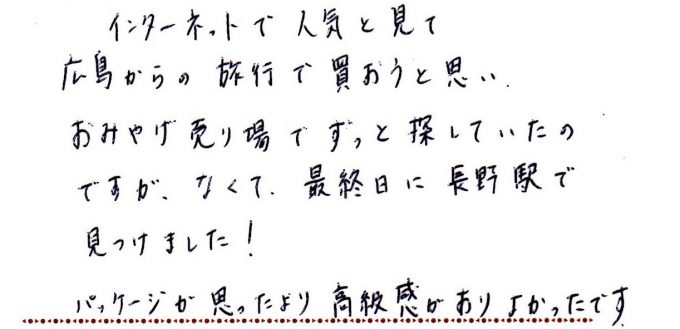 インターネットで人気と見て
広島からの旅行で買おうと思い、
おみやげ売り場でずっと探していたの
ですが、なくて、最終日に長野駅で
見つけました!
パッケージが思ったより高級感がありよかったです